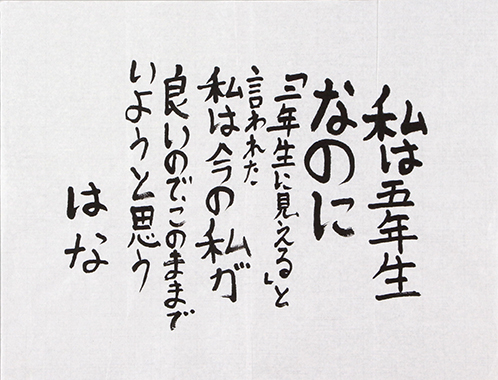 私は五年生
なのに
「三年生に見える」と
言われた
私は今の私が
良いので、このままで
いようと思う
はな